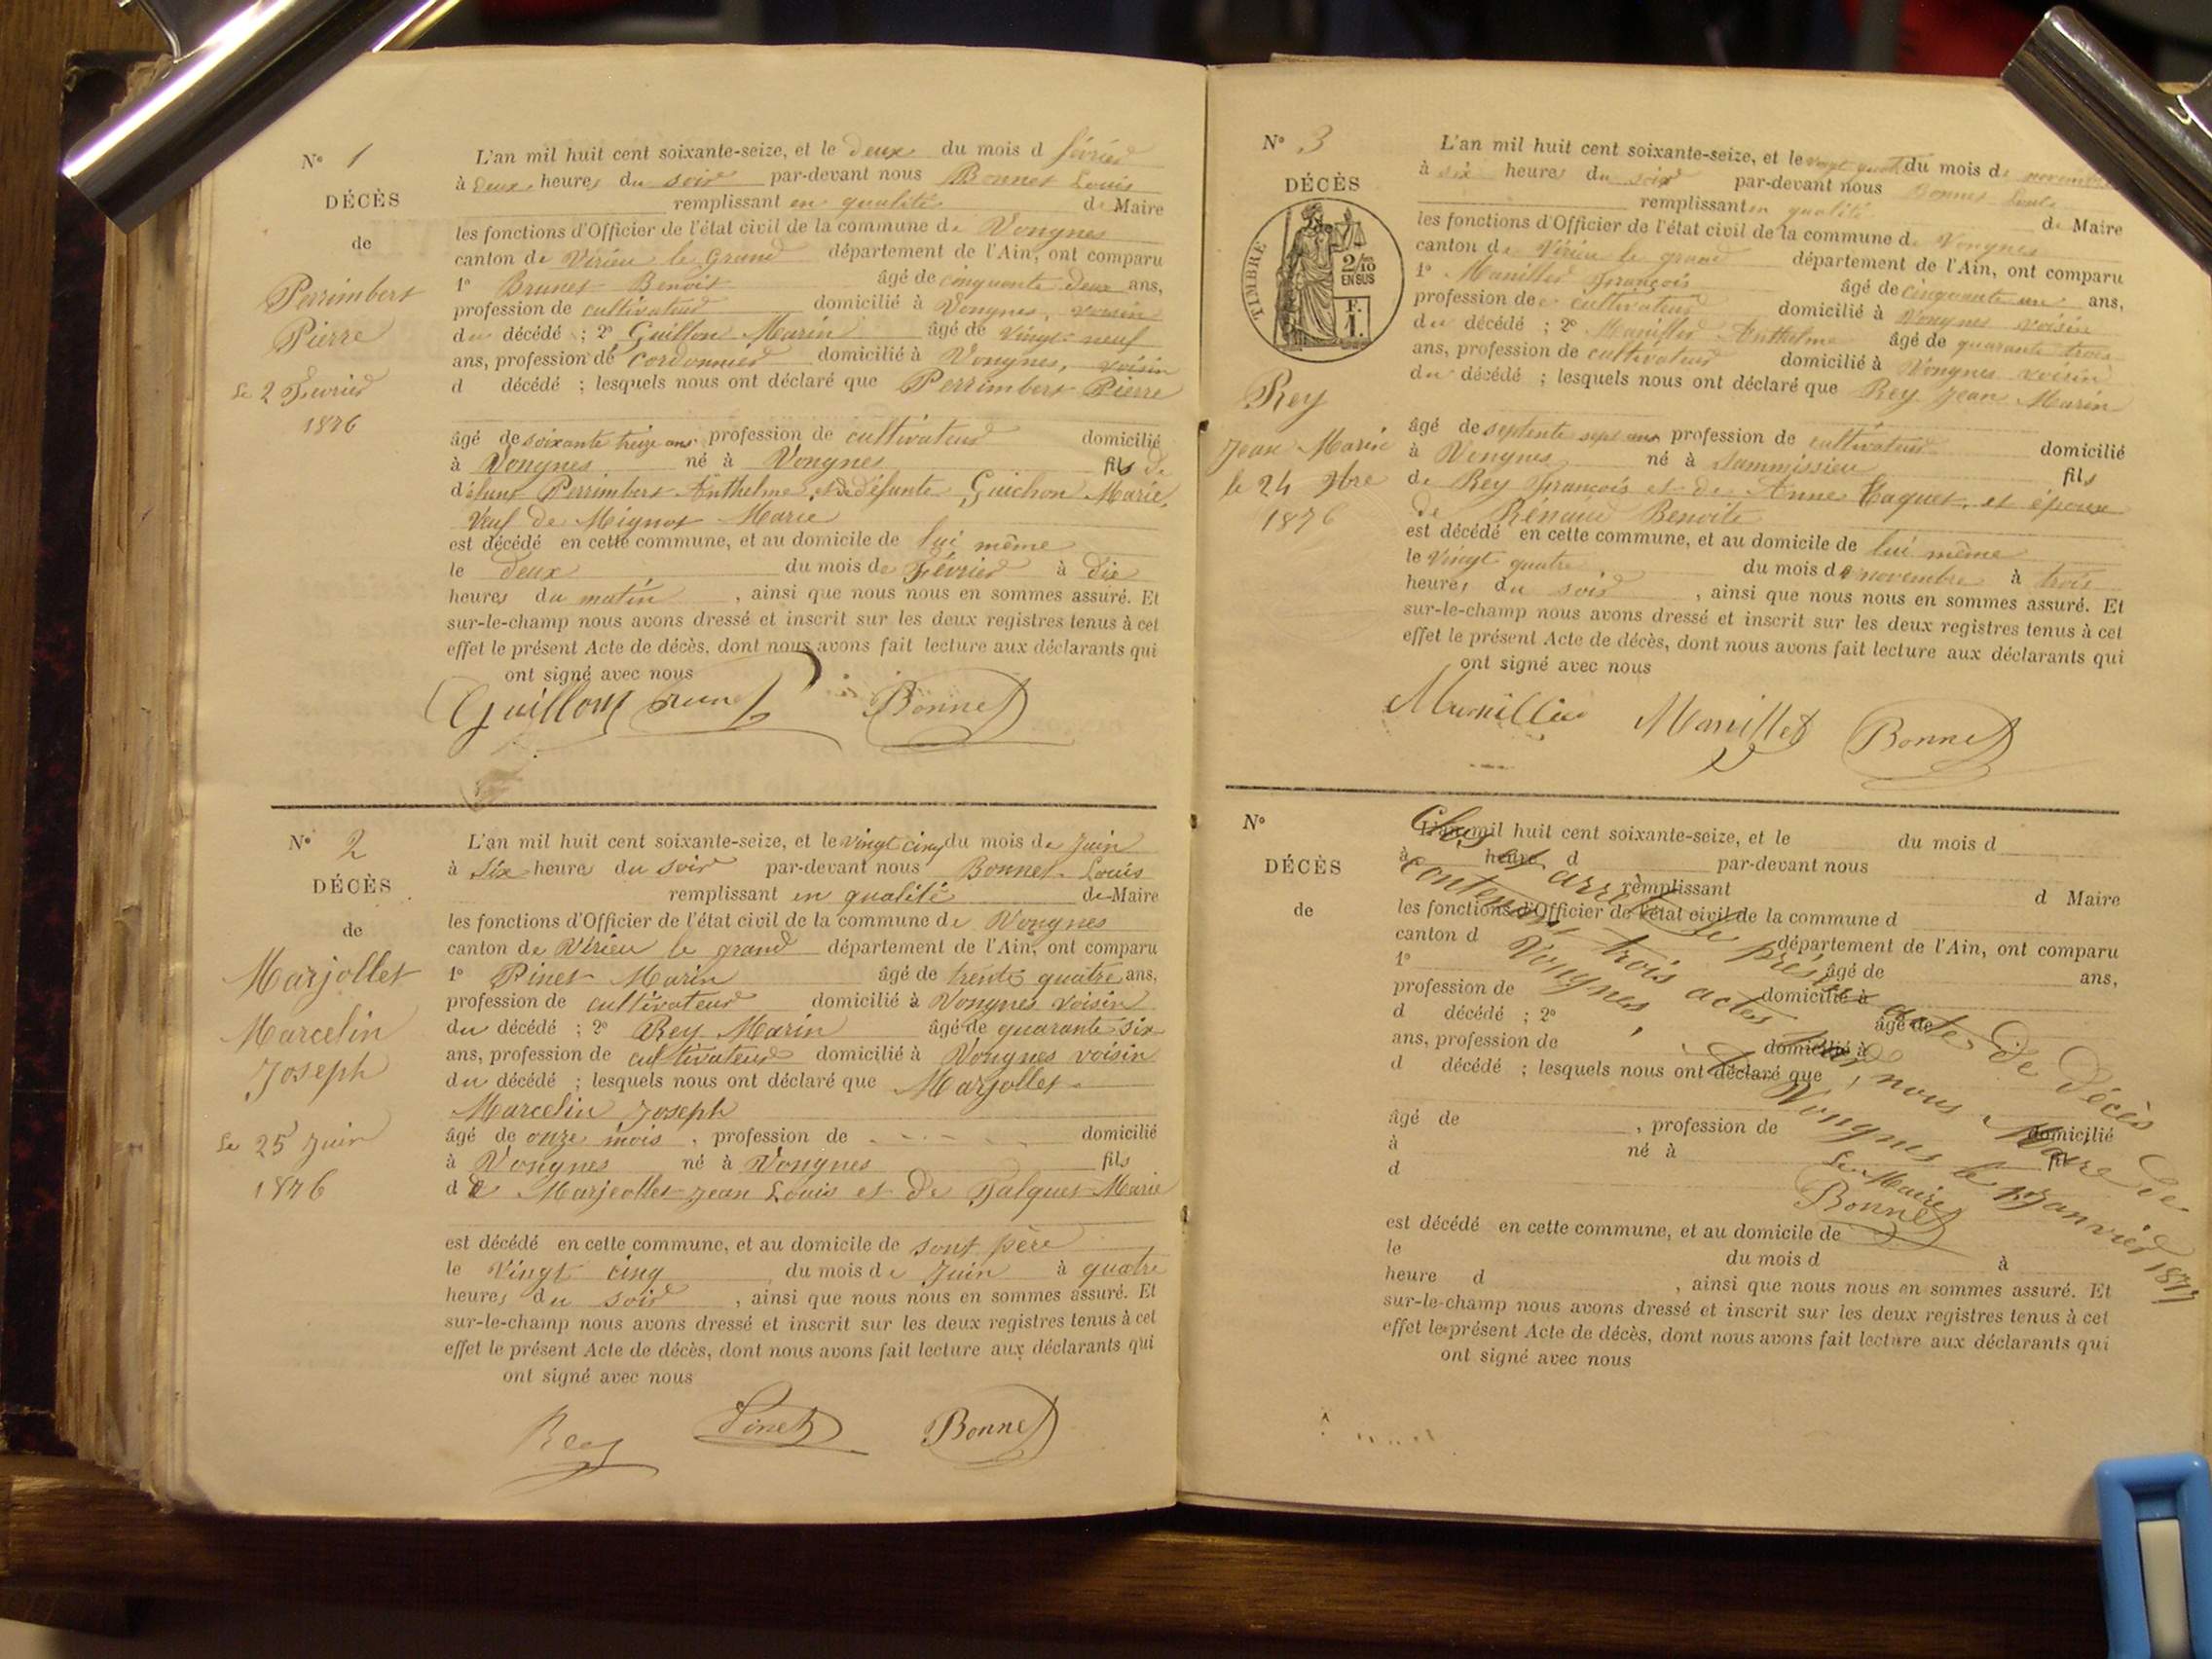 N° 1
DÉCÈS
de
Perrimbert
Pierre
Le 2 Février
1876
L'an mil huit cent soixante-seize, et le deux du mois d février
à deux heures du soir par-devant nous Bonnet Louis
remplissant en qualité de Maire
les fonctions d'Officier de l'état civil de la commune de Vongnes
canton de Virieu le Grand département de l'Ain, ont comparu
1° Brunet Benoit âgé de cinquante deux ans,
profession de cultivateur domicilié à Vongnes, voisin
du décédé ; 2° Guillon Marin âgé de vingt neuf
ans, profession de cordonnier domicilié à Vongnes, voisin
d décédé ; lesquels nous ont déclaré que Perrimbert Pierre
âgé de soixante treize ans profession de cultivateur domicilié
à Vongnes né à Vongnes fils de
défunt Perrimbert Anthelme, et de défunte Guichon Marie,
Veuf de Mignot Marie
est décédé en cette commune, et au domicile de lui même
le deux du mois de Février à dix
heures du matin , ainsi que nous nous en sommes assuré. Et
sur-le-champ nous avons dressé et inscrit sur les deux registres tenus à cet
effet le présent Acte de décès, dont nous avons fait lecture aux déclarants qui
ont signé avec nous
Guillon Brunet Bonnet
N° 2
DÉCÈS
de
Marjollet
Marcelin
Joseph
Le 25 Juin
1876
L'an mil huit cent soixante-seize, et le vingt cinq du mois de Juin
à six heures du soir par-devant nous Bonnet Louis
remplissant en qualité de Maire
les fonctions d'Officier de l'état civil de la commune de Vongnes
canton de Virieu le grand département de l'Ain, ont comparu
1° Pinet Marin âgé de trente quatre ans,
profession de cultivateur domicilié à Vongnes voisin
du décédé ; 2° Rey Marin âgé de quarante six
ans, profession de cultivateur domicilié à Vongnes voisin
du décédé ; lesquels nous ont déclaré que Marjollet
Marcelin Joseph
âgé de onze mois , profession de domicilié
à Vongnes né à Vongnes fils
d de Marjollet Jean Louis et de Marie
est décédé en cette commune, et au domicile de sont père
le vingt cinq du mois de Juin à quatre
heures du soir , ainsi que nous nous en sommes assuré. Et
sur-le-champ nous avons dressé et inscrit sur les deux registres tenus à cet
effet le présent Acte de décès, dont nous avons fait lecture aux déclarants qui
ont signé avec nous
Rey Pinet Bonnet
N° 3
DÉCÈS
TIMBRE
2/10
EN SUS
F.
1.
Rey
Jean Marin
le 24 9bre
1876
L'an mil huit cent soixante-seize, et le vingt quatre du mois de novembre
à six heures du soir par-devant nous Bonnet Louis
remplissant en qualité de Maire
les fonctions d'Officier de l'état civil de la commune de Vongnes
canton de Virieu le grand département de l'Ain, ont comparu
1° Manillier François âgé de cinquante un ans,
profession de cultivateur domicilié à Vongnes voisin
du décédé ; 2° Anthelme âgé de quarante trois
ans, profession de cultivateur domicilié à Vongnes voisin
du décédé ; lesquels nous ont déclaré que Rey Jean Marin
âgé de septente sept ans profession de cultivateur domicilié
à Vongnes né à fils
de Rey François et de Anne et époux
de Renaud Benoite
est décédé en cette commune, et au domicile de lui même
le vingt quatre du mois de novembre à trois
heures du soir , ainsi que nous nous en sommes assuré. Et
sur-le-champ nous avons dressé et inscrit sur les deux registres tenus à cet
effet le présent Acte de décès, dont nous avons fait lecture aux déclarants qui
ont signé avec nous
Manillier Manillet Bonnet
N°
DÉCÈS
de
L'an mil huit cent soixante-seize, et le du mois d
à heure d par-devant nous
remplissant d Maire
les fonctions d'Officier de l'état civil de la commune d
canton d département de l'Ain, ont comparu
1° âgé de ans,
profession de domicilié à
d décédé ; 2° âgé de
ans, profession de domicilié à
d décédé ; lesquels nous ont déclaré que
âgé de , profession de domicilié
à né à fils
d
est décédé en cette commune, et au domicile de
le du mois d à
heure d , ainsi que nous nous en sommes assuré. Et
sur-le-champ nous avons dressé et inscrit sur les deux registres tenus à cet
effet le présent Acte de décès, dont nous avons fait lecture aux déclarants qui
ont signé avec nous
Clos et arrêté le présent acte de décès
contenant trois actes par nous Maire de
Vongnes, à Vongnes le 1 Janvier 1877
Le Maire
Bonnet